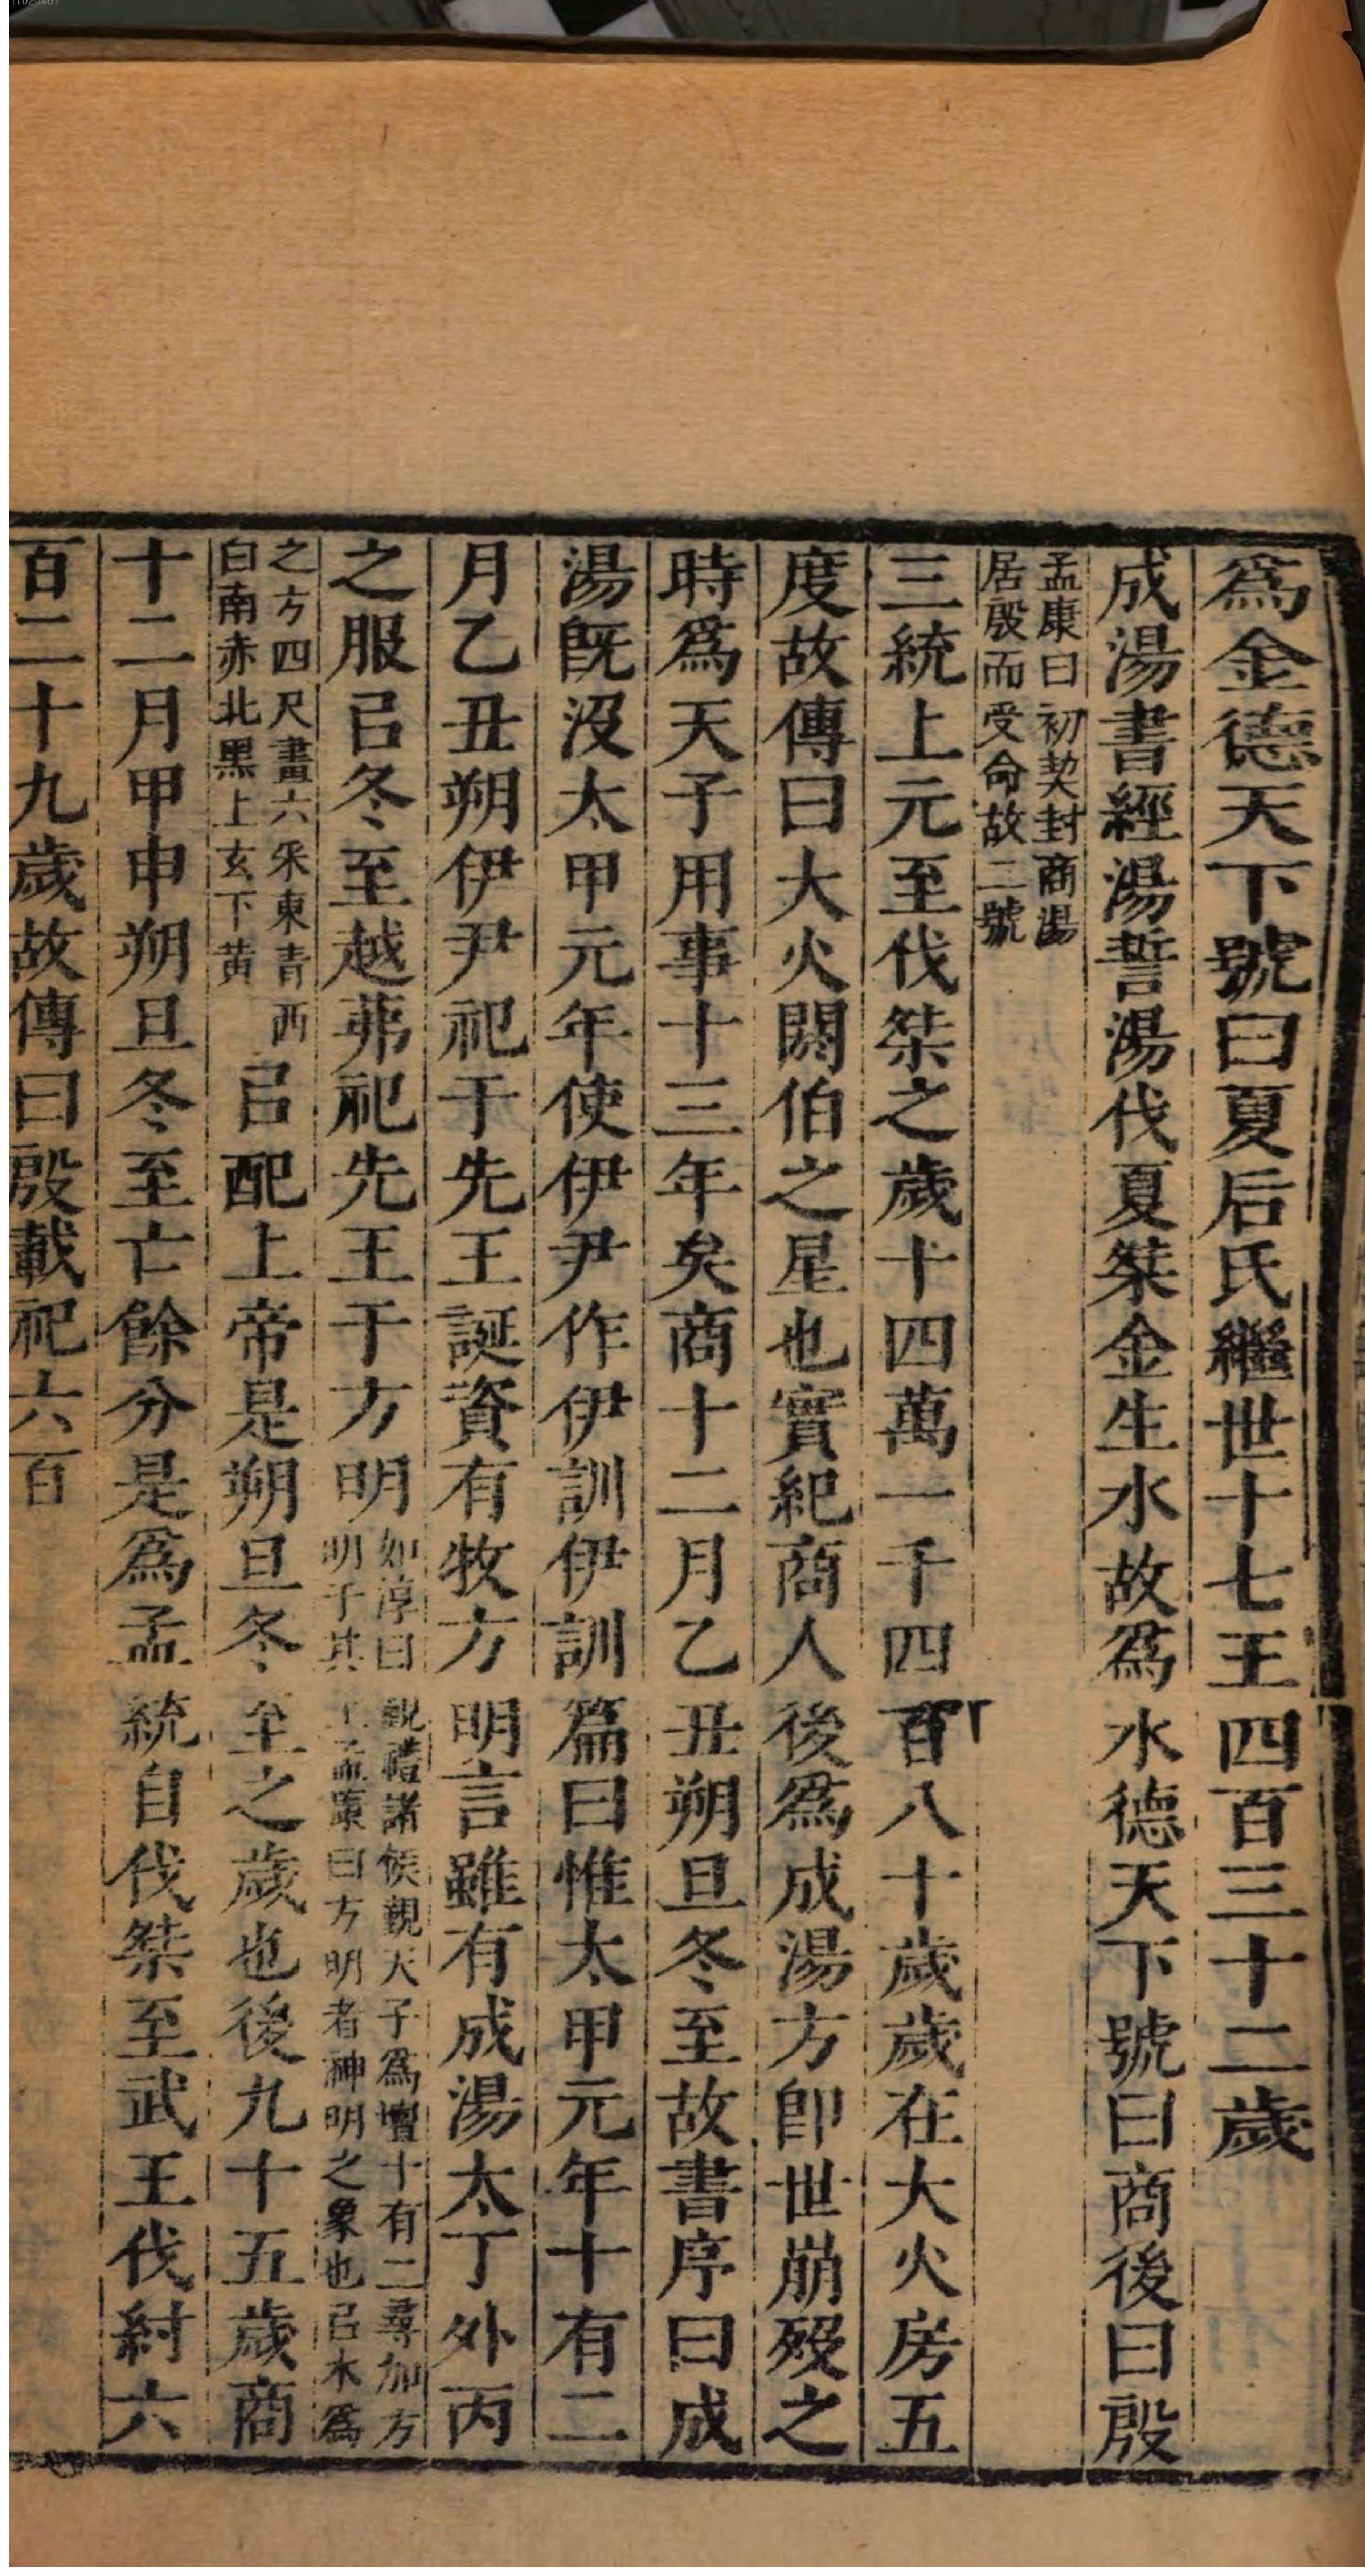 爲金德天下號曰夏后氏繼世十七王四百三十二歲
成湯書經湯誓湯伐夏桀金生水故爲水德天下號曰商後曰殷
孟康曰初契封商湯
居殷而受命故二號
三統上元至伐桀之歲十四萬一千四百八十歲歲在大火房五
度故傳曰大火閼伯之星也實紀商人後爲成湯方卽世崩歿之
時爲天子用事十三年矣商十二月乙丑朔旦冬至故書序曰成
湯旣沒太甲元年使伊尹作伊訓伊訓篇曰惟太甲元年十有二
月乙丑朔伊尹祀于先王誕資有牧方明言雖有成湯太丁外丙
之服㠯冬至越茀祀先王于方明
如淳曰覲禮諸侯覲天子爲壇十有二尋加方
明于其上孟康曰方明者神明之象也㠯木爲
之方四尺畫六采東青西
白南赤北黑上玄下黃
㠯配上帝是朔旦冬至之歲也後九十五歲商
十二月甲申朔旦冬至亡餘分是爲孟統自伐桀至武王伐紂六
百二十九歲故傳曰殷載祀六百